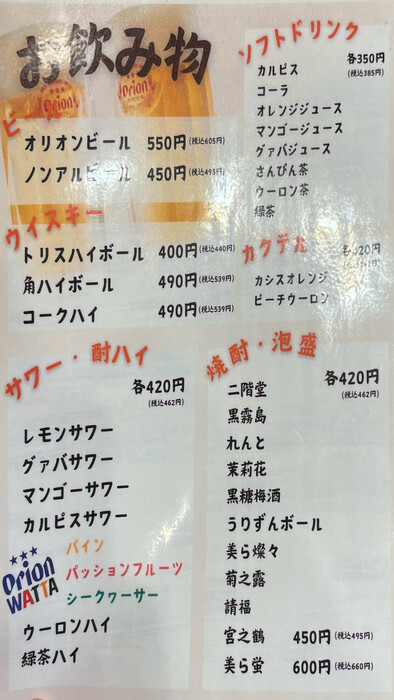 お飲み物
ビール
オリオンビール 550円(税込605円)
ノンアルビール 450円(税込495円)
ウイスキー
トリスハイボール 400円(税込440円)
角ハイボール 490円(税込539円)
コークハイ 490円(税込539円)
サワー・酎ハイ
各420円
(税込462円)
レモンサワー
グァバサワー
マンゴーサワー
カルピスサワー
Orion
WATTA
パイン
パッションフルーツ
シークヮーサー
ウーロンハイ
緑茶ハイ
ソフトドリンク
各350円
(税込385円)
カルピス
コーラ
オレンジジュース
マンゴージュース
グァバジュース
さんぴん茶
ウーロン茶
緑茶
カクテル
カシスオレンジ
ピーチウーロン
焼酎・泡盛
各420円
(税込462円)
二階堂
黒霧島
れんと
茉莉花
黒糖梅酒
うりずんボール
美ら燦々
菊之露
請福
宮之鶴 450円(税込495円)
美ら蛍 600円(税込660円)